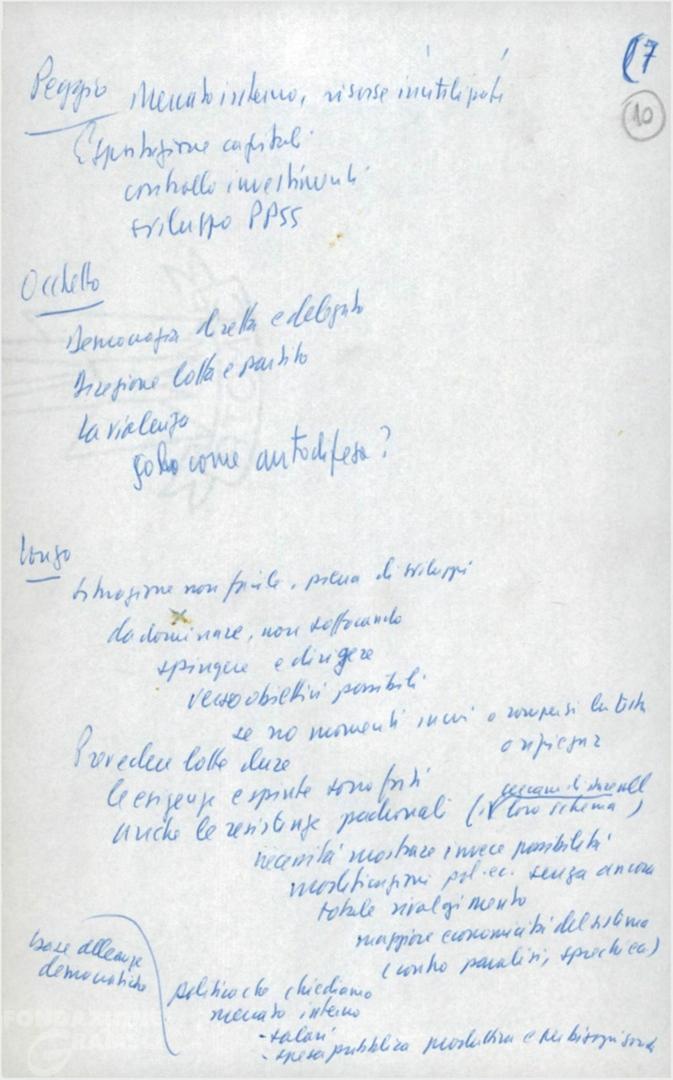 17
10
Peggio Mercato interno, risorse inutilizzate
Esportazione capitali
controllo investimenti
sviluppo PPSS
Occhetto
Democrazia diretta e delegata
Direzione lotta e partito
La violenza
solo come autodifesa?
Longo
Situazione non facile, piena di sviluppi
da dominare, non soffocando
spingere e dirigere
verso obiettivi possibili
se no momenti in cui o rompersi la testa
o ripiegare
Prevedere lotte dure
le esigenze e spinte sono forti
anche le resistenze padronali (loro schema)
necessità mostrare invece possibilità
modificazioni pol-ec. senza ancora
totale rivolgimento
maggiore economicità del sistema
(contro paralisi, sprechi ec)
base alleanze
democratiche
politica che chiediamo
mercato interno
- salari
- spesa pubblica produttiva e per bisogni
FONDAZIONE
GRAMSCI